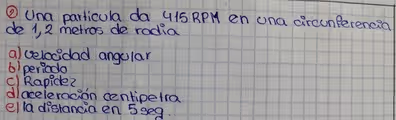 ② Una particula da 415 RPM en una circunferencia
de 1,2 metros de radia
a) velocidad angular
b) periodo
c) Rapidez
d) aceleración centipetra
e) la distancia en 5 seg.